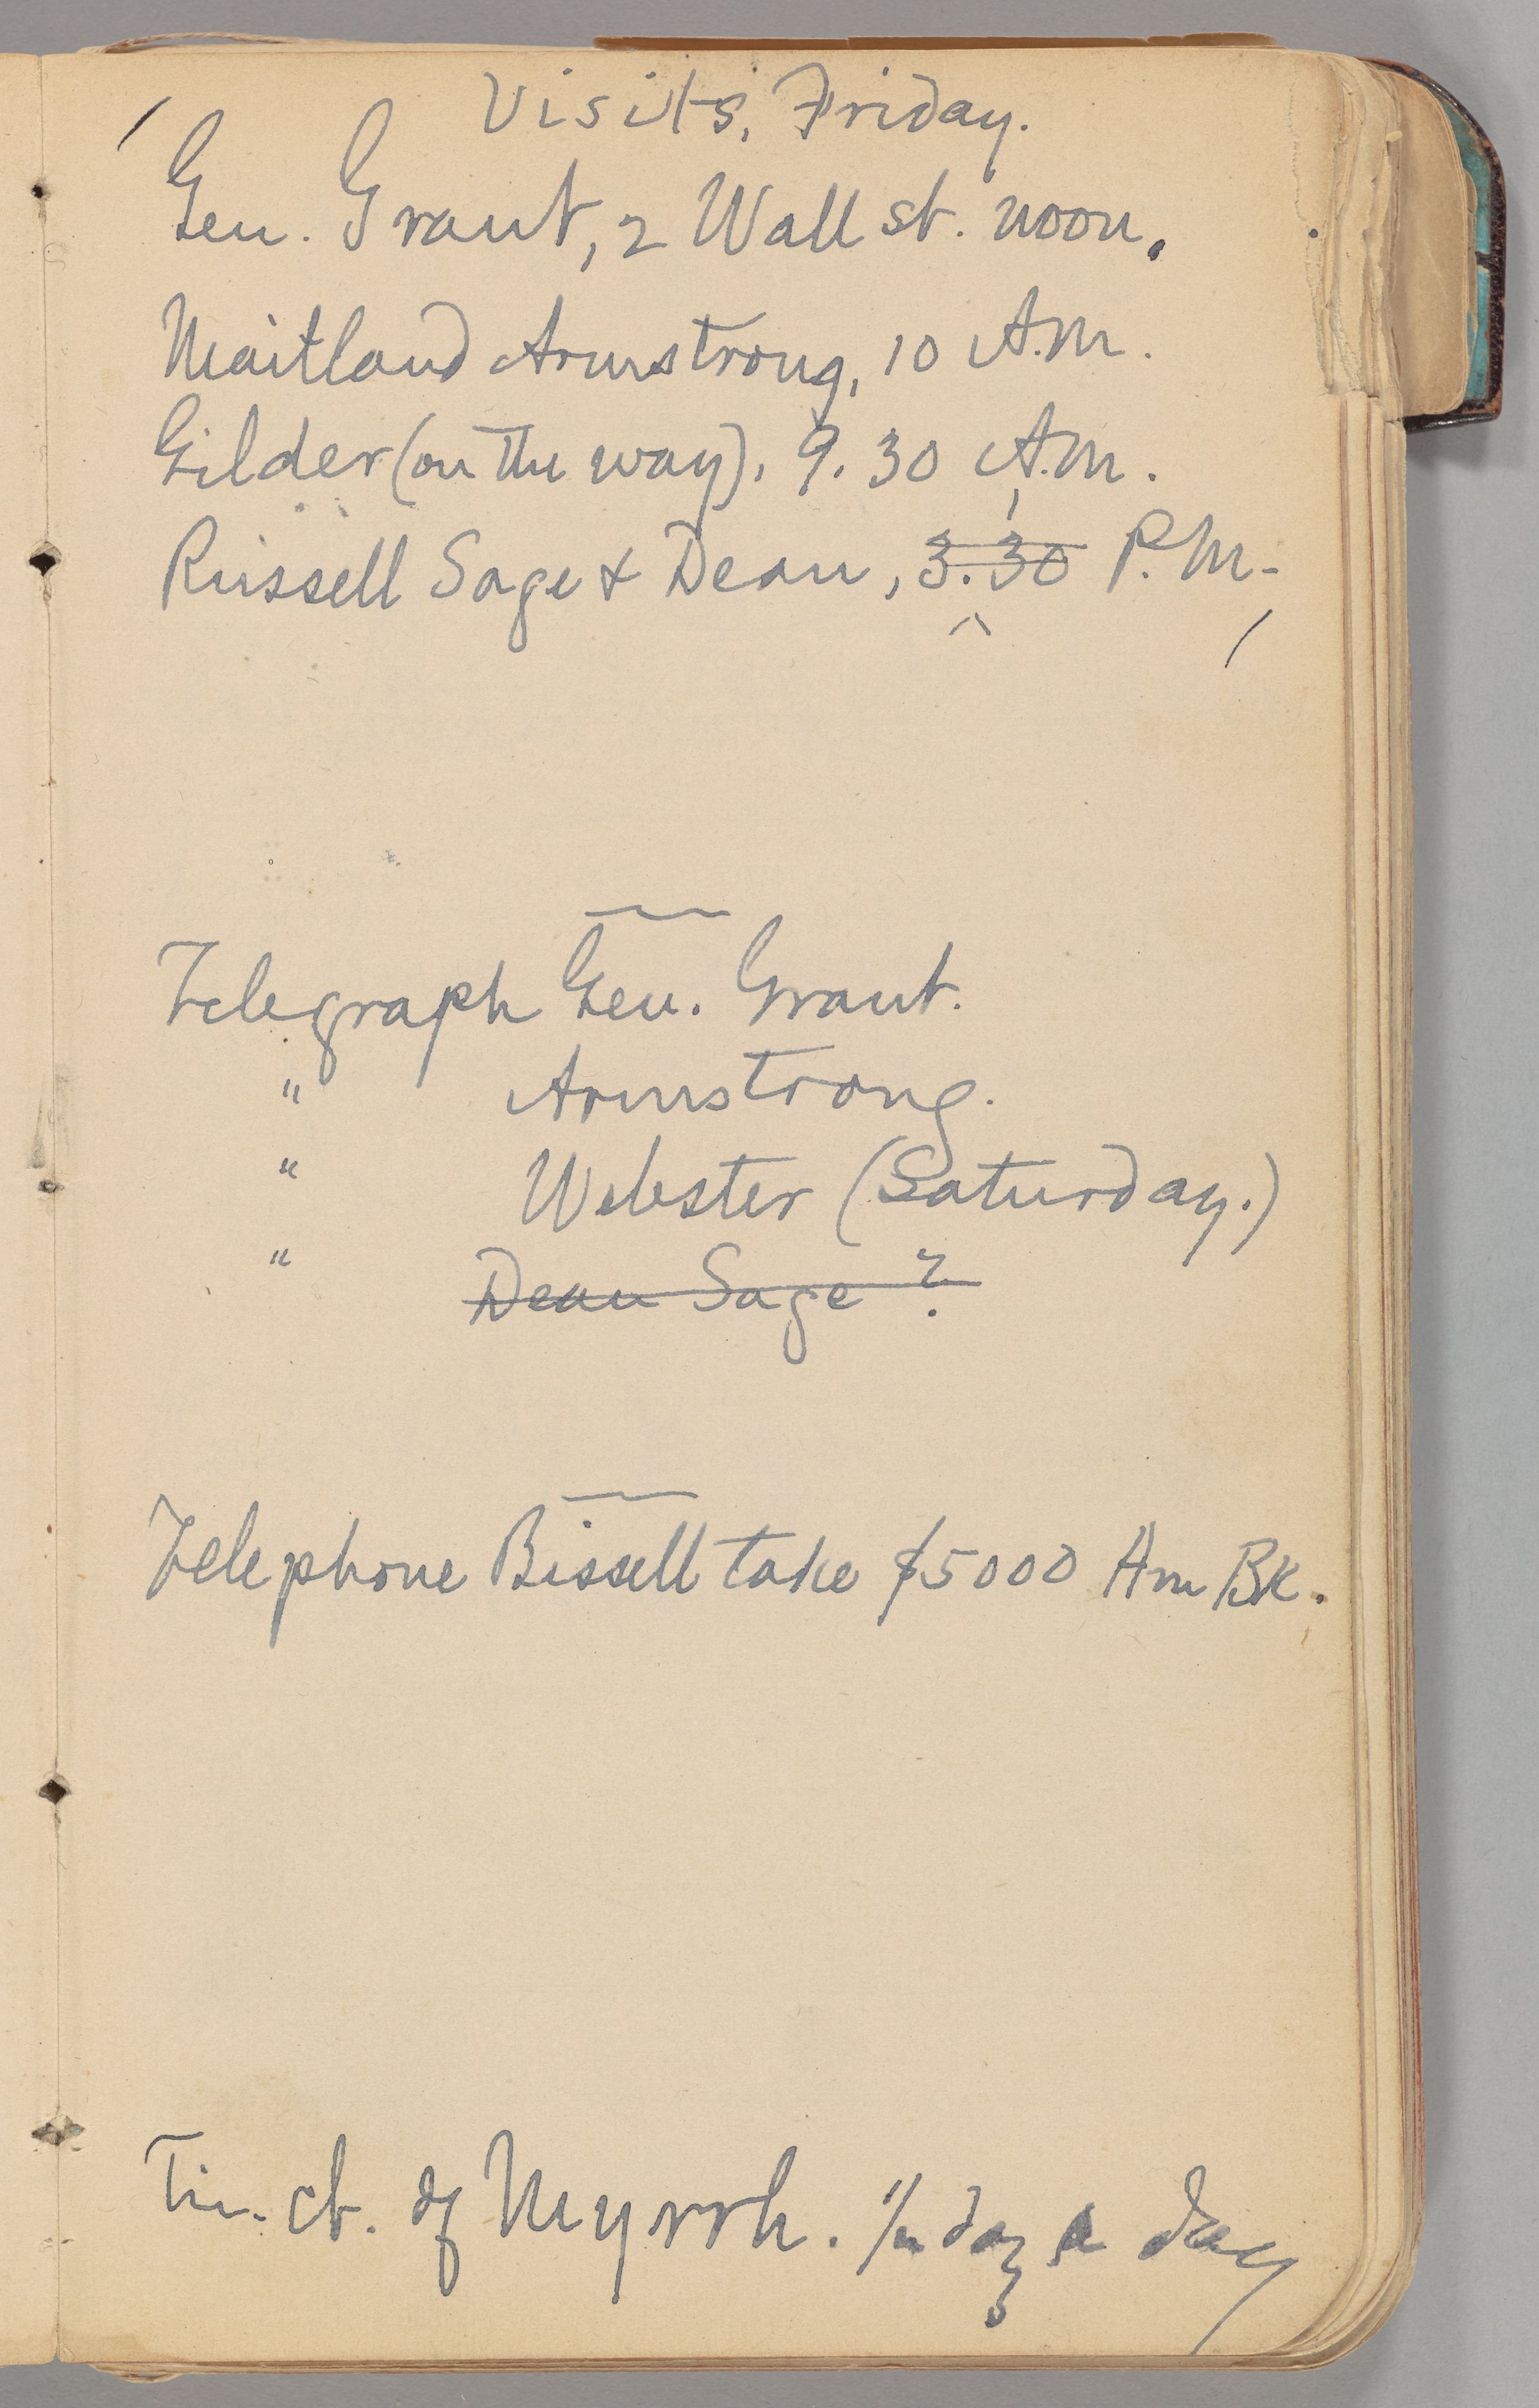 Visits, Friday.
Gen. Grant, 2 Wall st. noon.
Maitland Armstrong, 10 A.M.
Gilder (on the way), 9.30 A.M.
Russell Sage & Dean, 3.30 P.M.
Telegraph Gen. Grant.
" Armstrong.
" Webster (Saturday.)
" Dean Sage?
Telephone Bissell take $5000 Am Bk.
Tin. ct. of Myrrh. a day